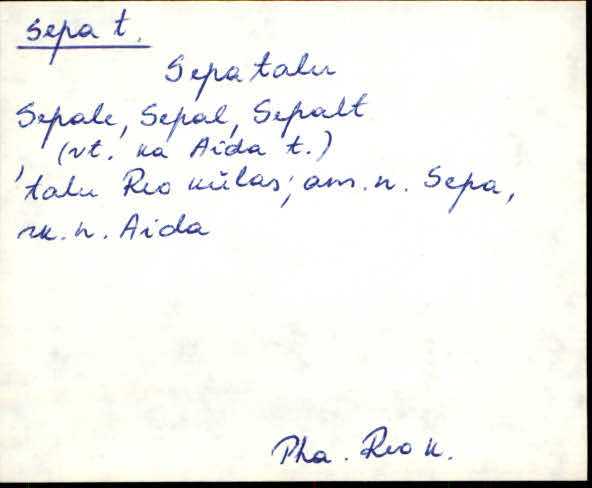 Sepa t.
Sepa talu
Sepale, Sepal, Sepalt
(vt. ka Aida t.)
'talu Reo külas; am. n. Sepa,
rk. n. Aida
Pha. Reo k.